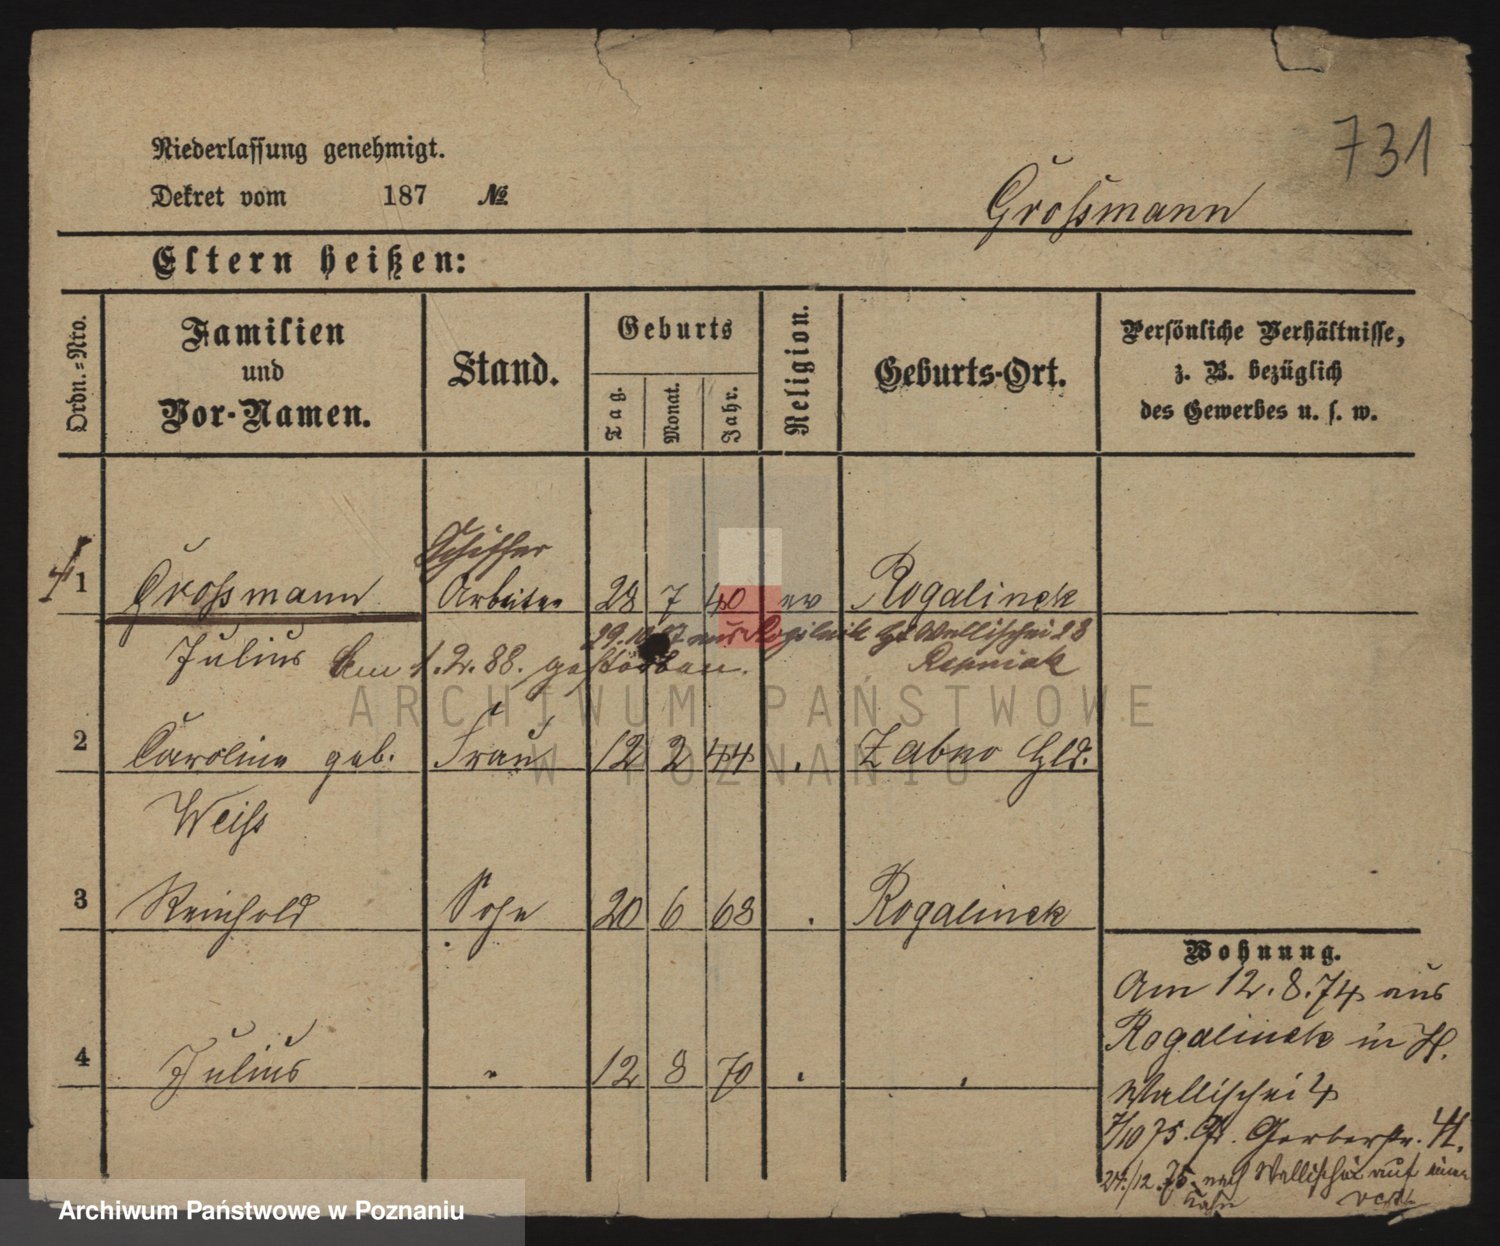 731
Niederlassung genehmigt.
Dekret vom 187 №
Grossmann
Eltern heißen:
Ordn.=Nro.
Familien
und
Vor-Namen.
Stand.
Geburts
Tag.
Monat.
Jahr.
Religion.
Geburts-Ort.
Persönliche Verhältnisse,
z. B. bezüglich
des Gewerbes u. s. w.
Schiffer
1 Grossmann Arbeiter 28 7 40 ev Rogalinek
29.10.87 aus Wallischei 28
Julius Am 1.2.88. gestorben.
2 Caroline geb. Frau 12 2 44 . Zabno Hld.
Weiss
3 Reinhold Sohn 20 6 68 . Rogalinek
Wohnung.
Am 12.8.74 aus
Rogalinek in H.
4 Julius " 12 8 70 . .
Wallischei 4
7/10 75. Gr. Gerberstr. 41.
24/12.75. nach Wallischei auf einen
Kahn
ARCHIWUM PAŃSTWOWE
W POZNANIU
Archiwum Państwowe w Poznaniu